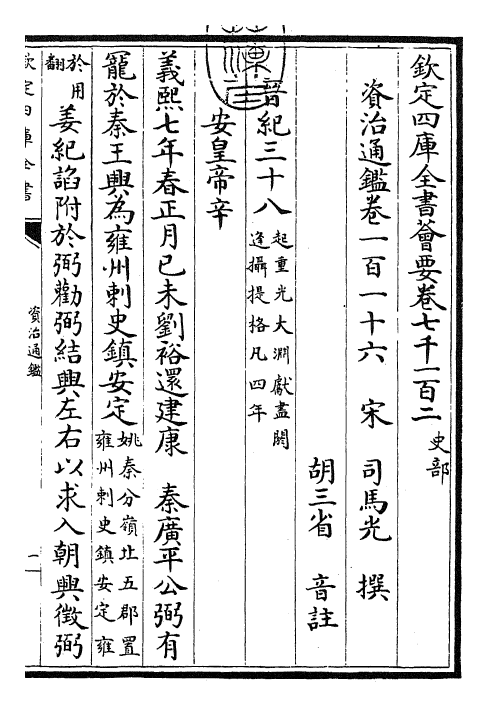 欽定四庫全書薈要卷七千一百二 史部
資治通鑑卷一百一十六 宋 司馬光 撰
胡三省 音註
晉紀三十八 起重光大淵獻盡閼
逢攝提格凡四年
安皇帝辛
義熙七年春正月己未劉裕還建康 秦廣平公弼有
寵於秦王興為雍州刺史鎮安定 姚秦分嶺北五郡置
雍州刺史鎮安定雍
於用
翻 姜紀諂附於弼勸弼結興左右以求入朝興徵弼
欽定四庫全書
資治通鑑
一